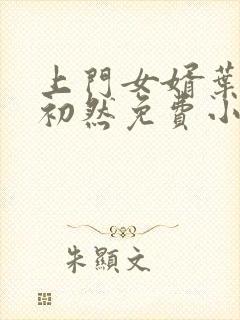 上門女婿葉
初然免費小
朱顯文